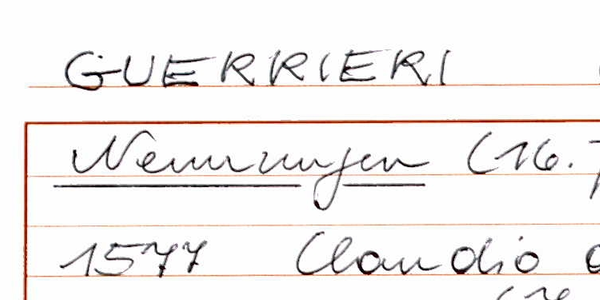 GUERRIERI
Nennungen (16.
1577 Claudio